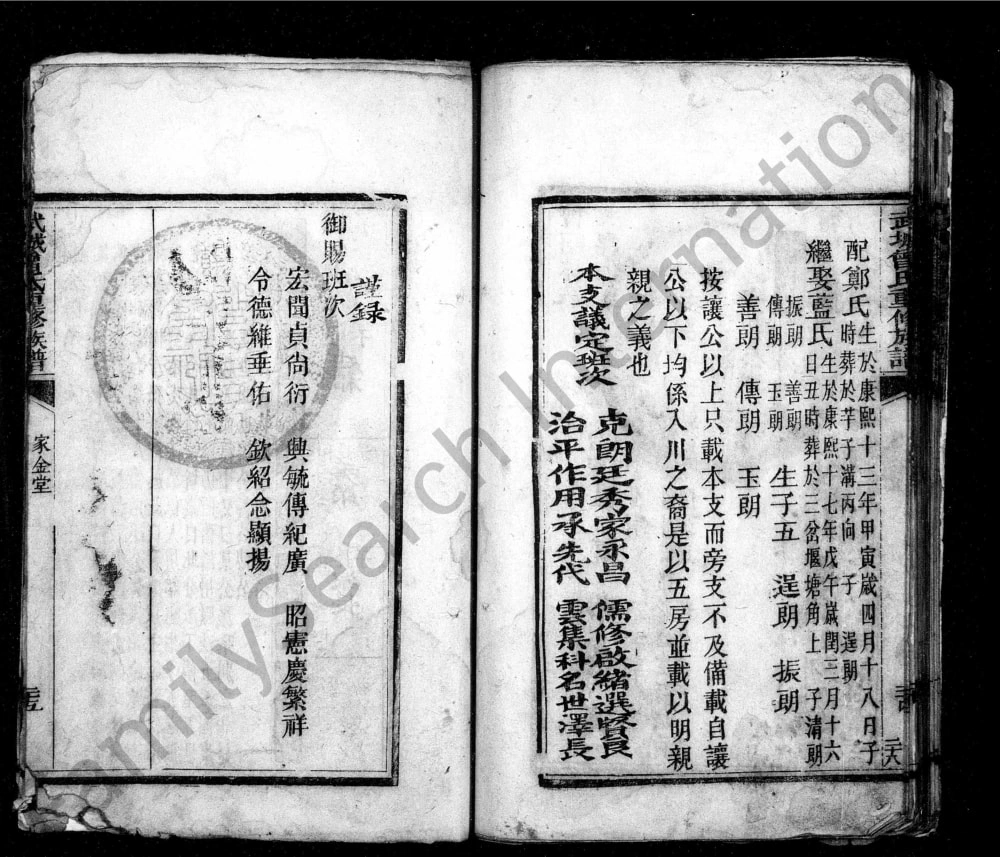 武城曾氏重修族譜
配鄭氏生於康熙十三年甲寅歲四月十八日子
時葬於芋子溝丙向 子 逞朗
繼娶藍氏生於康熙十七年戊午歲閏三月十六
日丑時葬於三岔堰塘角上 子清朗
振朗 善朗
傳朗 玉朗
生子五 逞朗 振朗
善朗 傳朗 玉朗
按讓公以上只載本支而旁支不及備載自讓
公以下均係入川之裔是以五房並載以明親
親之義也
本支議定班次
克朗廷秀家永昌 儒修啟緒選賢良
治平作用承先代 雲集科名世澤長
謹錄
御賜班次
宏聞貞尚衍 興毓傳紀廣 昭憲慶繁祥
令德維垂佑 欽紹念顯揚
武城曾氏重修族譜
家金堂
FamilySearch International